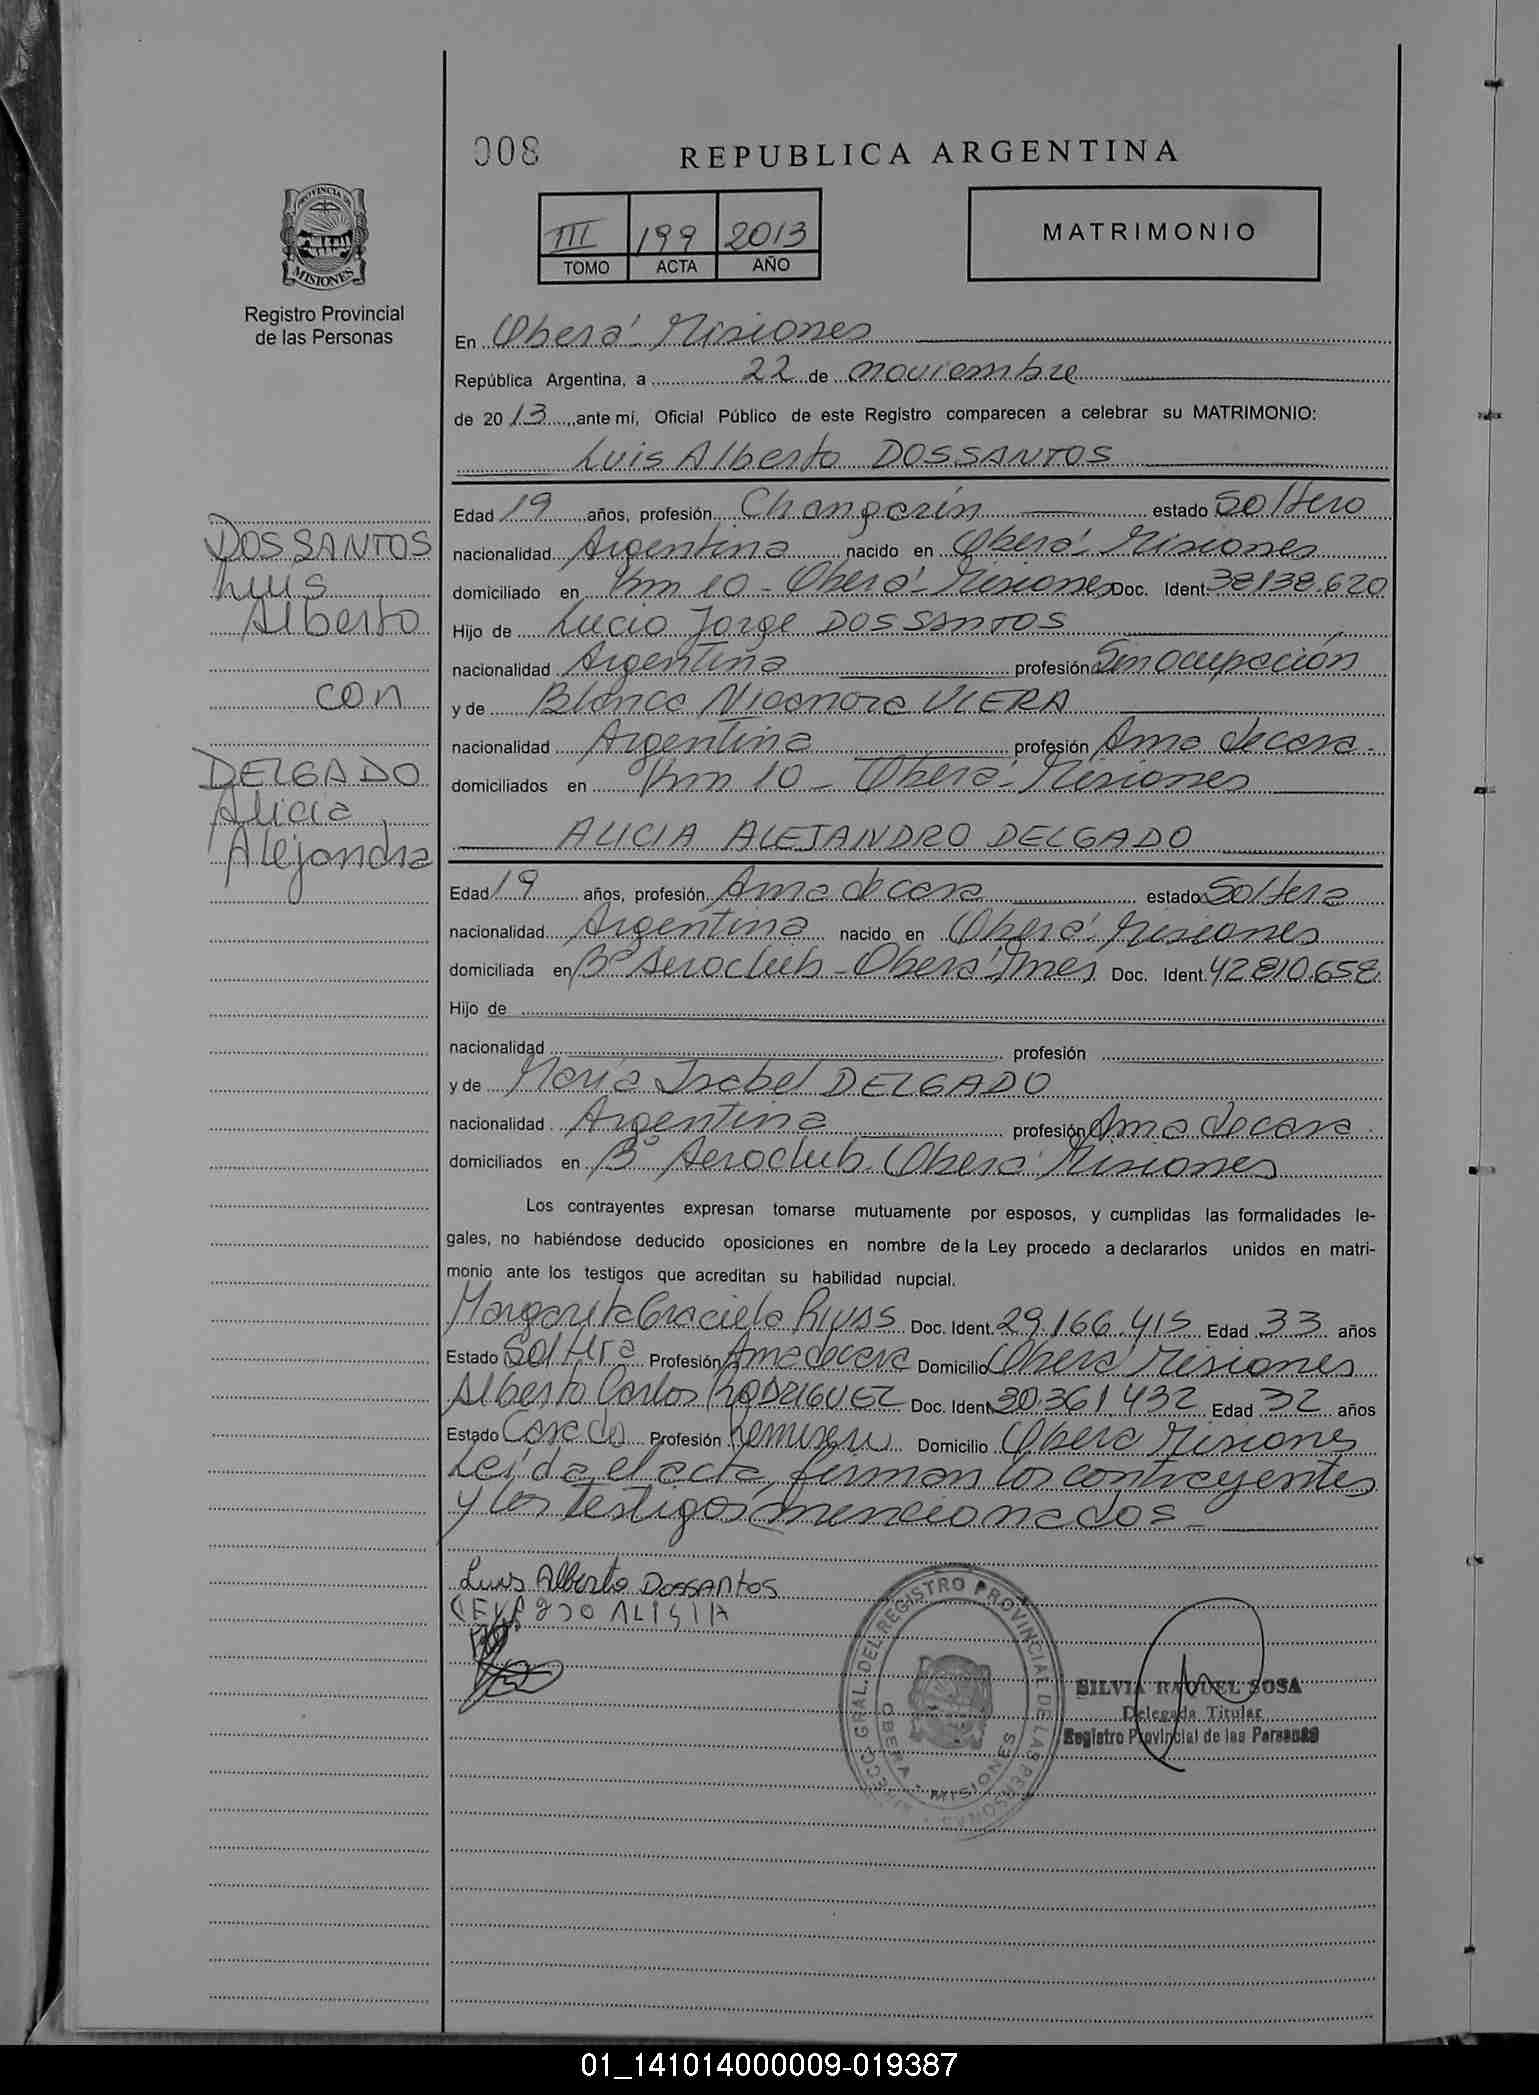 008
REPUBLICA ARGENTINA
PROVINCIA DE
MISIONES
Registro Provincial
de las Personas
III 199 2013
TOMO ACTA AÑO
MATRIMONIO
En Oberá - Misiones
República Argentina, a 22 de noviembre
de 2013, ante mí, Oficial Público de este Registro comparecen a celebrar su MATRIMONIO:
Luis Alberto DOSSANTOS
Edad 19 años, profesión Changarín estado Soltero
nacionalidad Argentina nacido en Oberá - Misiones
domiciliado en Km 10 - Oberá - Misiones Doc. Ident. 38138.620
Hijo de Lucio Jorge DOSSANTOS
nacionalidad Argentina profesión Sin ocupación
y de Blanca Nicanora VIERA
nacionalidad Argentina profesión Ama de casa.
domiciliados en Km 10 - Oberá - Misiones
DOSSANTOS
Luis
Alberto
con
DELGADO
Alicia
Alejandra
ALICIA ALEJANDRO DELGADO
Edad 19 años, profesión Ama de casa estado Soltera
nacionalidad Argentina nacido en Oberá - Misiones
domiciliada en Bº Aeroclub - Oberá Mnes Doc. Ident. 42810.658
Hijo de
nacionalidad profesión
y de María Isabel DELGADO
nacionalidad Argentina profesión Ama de casa.
domiciliados en Bº Aeroclub Oberá Misiones
Los contrayentes expresan tomarse mutuamente por esposos, y cumplidas las formalidades le-
gales, no habiéndose deducido oposiciones en nombre de la Ley procedo a declararlos unidos en matri-
monio ante los testigos que acreditan su habilidad nupcial.
Margarita Graciela Doc. Ident. 29.166.415 Edad 33 años
Estado Soltera Profesión Ama de casa Domicilio Oberá Misiones
Alberto Carlos RODRIGUEZ Doc. Ident. 30.361.432 Edad 32 años
Estado Casado Profesión Remisero Domicilio Oberá Misiones
Leída el acta, firman los contrayentes
y los testigos mencionados -
Luis Alberto DOSSANTOS
ALISIA
DIRECC. GRAL. DEL REGISTRO PROVINCIAL DE LAS PERSONAS
OBERA - MISIONES
SILVIA RAQUEL SOSA
Delegada Titular
Registro Provincial de las Personas
01_141014000009-019387